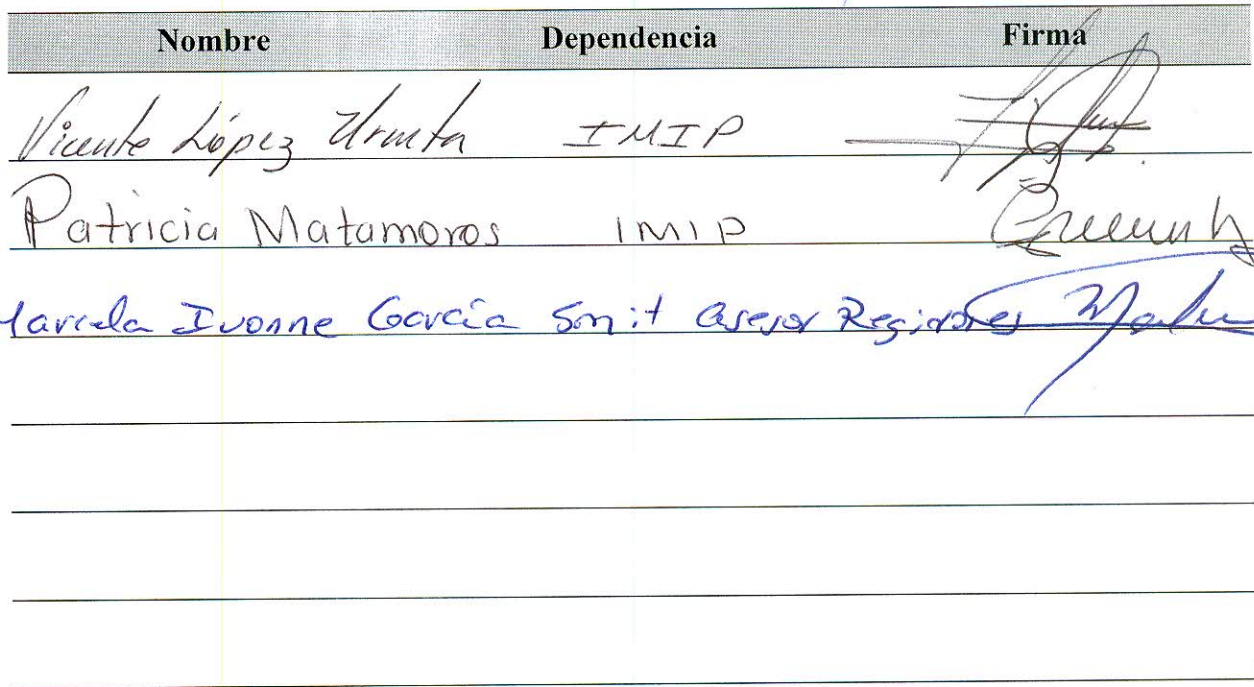 Nombre Dependencia Firma
Vicente López Urueta IMIP
Patricia Matamoros IMIP
Marcela Ivonne García Smit Asesor Regidores